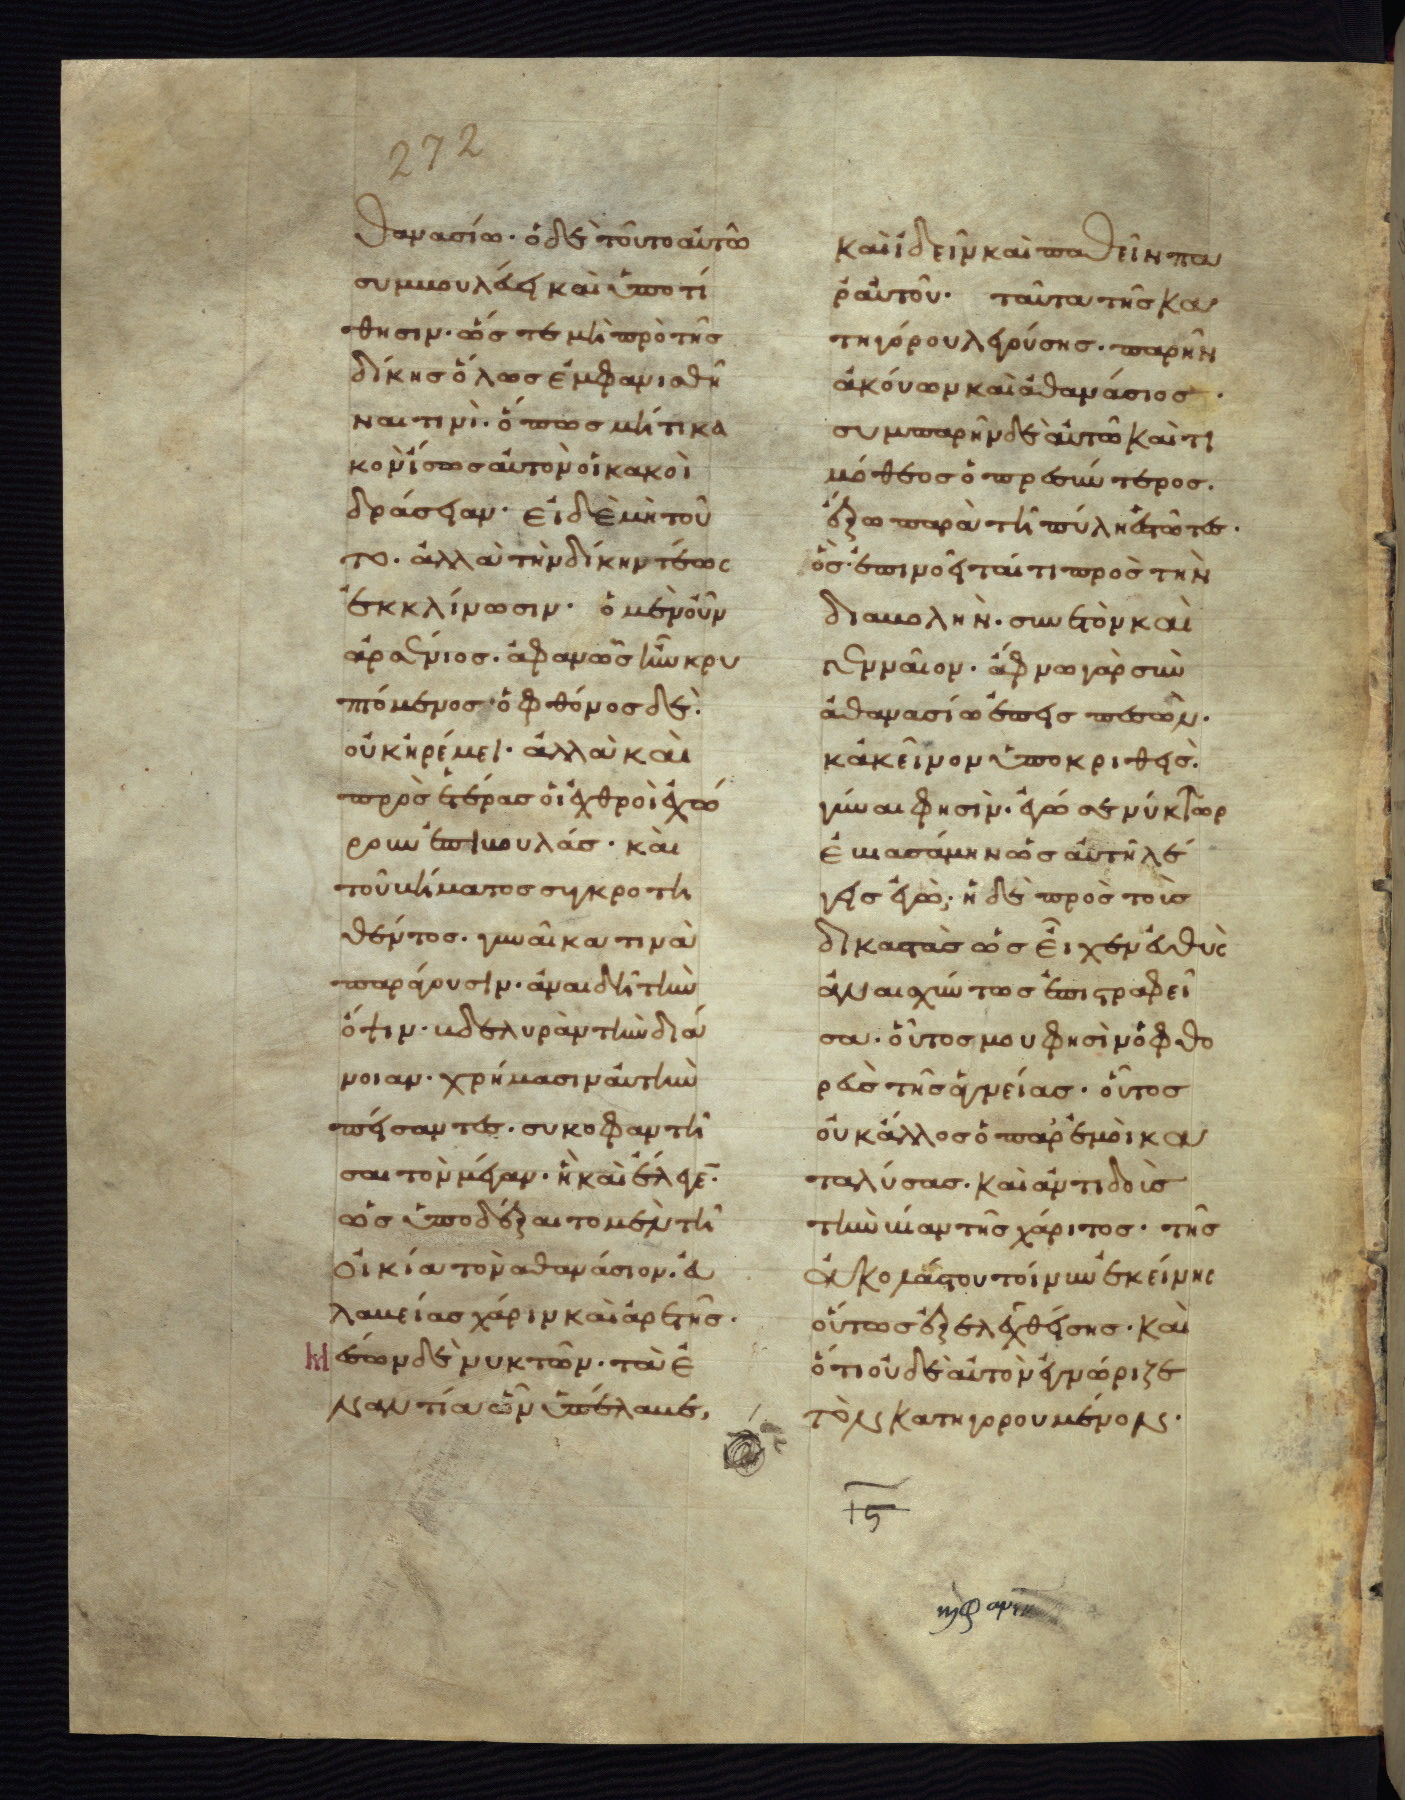 272
θανασίω· ὁ δὲ τοῦτο αὐτῶ
συμβουλεύει καὶ ὑποτί
θησιν· ὥς τε μὴ πρὸ τῆς
δίκης ὅλως ἐμφανισθῆ
ναι τινὶ· ὅπως μή τι κα
κὸν ἴσως αὐτὸν οἱ κακοὶ
δράσειαν· εἰ δὲ μὴ τοῦ
το· ἀλλὰ τὴν δίκην τέως
ἐκκλίνωσιν· ὁ μὲν οὖν
ἀρσένιος· ἀφανῶς ἦν κρυ
πτόμενος· ὁ φθόνος δὲ·
οὐκ ἠρέμει· ἀλλὰ καὶ
πρὸς ἑτέρας οἱ ἐχθροὶ ἐχώ
ρουν ἐπιβουλάς· καὶ
τοῦ βήματος συγκροτη
θέντος· γυναῖκα τινὰ
παράγουσιν· ἀναιδῆ τὴν
ὄψιν· βδελυρὰν τὴν διά
νοιαν· χρήμασιν αὐτὴν
πείσαντες· συκοφαντῆ
σαι τὸν μέγαν· ἣ καὶ ἔλεγεν·
ὡς ὑποδέξαιτο μὲν τῆ
οἰκία τὸν αθανάσιον· εὐ
λαβείας χάριν καὶ ἀρετῆς·
μέσων δὲ νυκτῶν· τὰ ἐ
ναντία ὧν ὑπέλαβε,
καὶ ἰδεῖν καὶ παθεῖν πα
ρ' αὐτοῦ· ταῦτα τῆς κα
τηγόρου λεγούσης· παρῆν
ἀκούων καὶ ἀθανάσιος·
συμπαρῆν δὲ αὐτῶ καὶ τι
μόθεος ὁ πρεσβύτερος·
ἔξω παρὰ τῆ πύλη ἑστῶτες·
ὃς ἐπινοεῖταί τι πρὸς τὴν
διαβολὴν· συνετὸν καὶ
γενναῖον· ἄφνω γὰρ σὺν
ἀθανασίω ἐπεισπεσὼν·
κἀκεῖνον ὑποκριθεὶς·
γύναι φησὶν· ἐγώ σε νύκτωρ
ἐβιασάμην ὡς αὐτὴ λέ
γεις ἐγὼ; ἡ δὲ πρὸς τοὺς
δικαστὰς ὡς εἶχεν εὐθὺς
ἀναισχύντως ἐπιστραφεῖ
σα· οὗτος μου φησὶν ὁ φθο
ρεὺς τῆς ἁγνείας· οὗτος
οὐκ ἄλλος ὁ παρ' ἐμοὶ κα
ταλύσας· καὶ ἀντιδοὺς
τὴν βίαν τῆς χάριτος· τῆς
ἀκολάστου τοίνυν ἐκείνης
οὕτως ἐξελεγχθείσης· καὶ
ὅτι οὐδὲ αὐτὸν ἐγνώριζε
τὸν κατηγορουμενον·